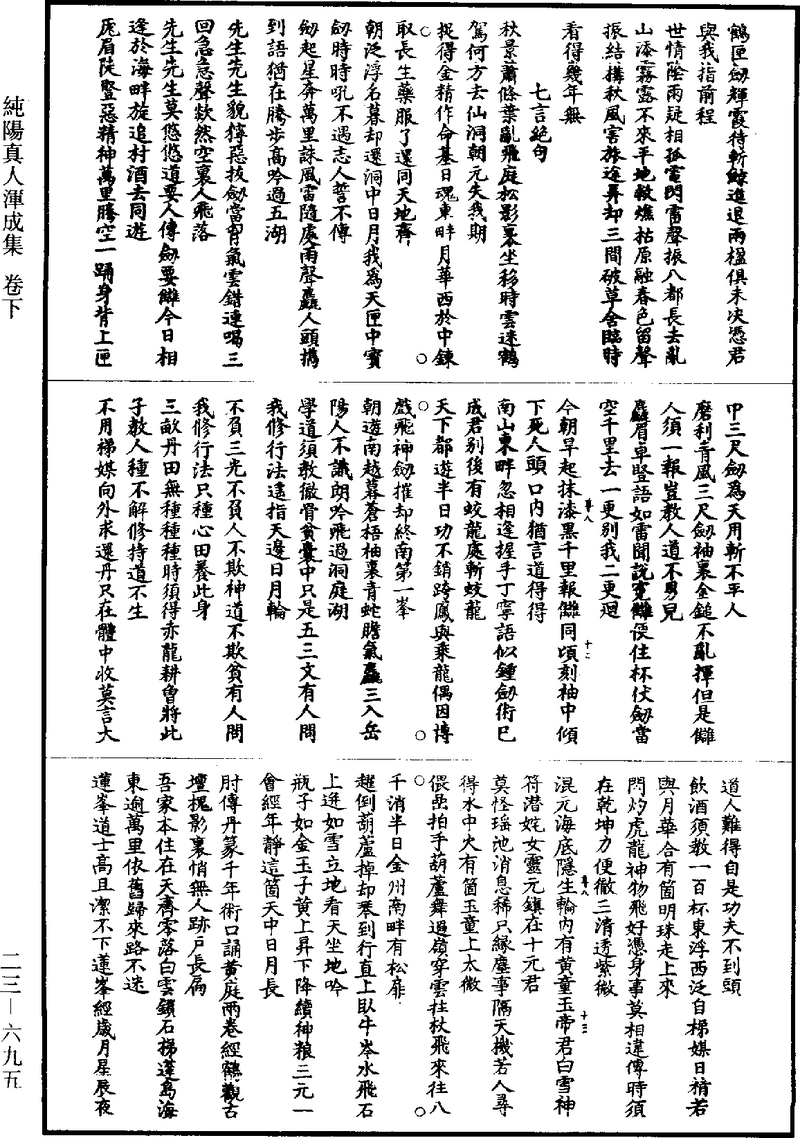 鶴匣劒輝霞待斬鯨進退兩楹俱未决憑君
與我指前程
世情陰雨疑相孤電閃雷聲振八都長去亂
山漆霧露不來平地救燋枯原融春色留聲
振結搆秋風害旅途弄却三間破草舍臨時
看得幾年無
七言絶句
秋景蕭條葉亂飛庭松影裏坐移時雲迷鶴
駕何方去仙洞朝元失我期
捉得金精作命基日魂東畔月華西於中鍊
取長生藥服了還同天地齊
朝泛浮名暮却還洞中日月我爲天匣中寶
劒時時吼不遇志人誓不傳
劒起星奔萬里誅風雷隨處雨聲麤人頭携
到語猶在騰步高吟過五湖
先生先生貌獰惡拔劒當胷氣雲錯連喝三
回急急聲欻然空裏人飛落
先生先生莫悠悠道要人傳劒要讎今日相
逢於海畔旋追村酒去同遊
厖眉陡豎惡精神萬里騰空一踊身背上匣
中三尺劒爲天用斬不平人
磨利青風三尺劒袖裏金鎚不亂揮但是讎
人須一報豈教人道不男兒
麤眉卓豎語如雷聞説讎便住杯伏劒當
空千里去一更别我二更迴
今朝早起抹漆黑千里報讎同頃刻袖中傾
下死人頭口内猶言道得得
南山東畔忽相逢握手丁寧語似鍾劒術已
成君别後有蛟龍處斬蛟龍
天下都遊半日功不銷跨鳳與乘龍偶因博
戲飛神劒摧却終南第一峯
朝遊南越暮蒼梧袖裏青蛇膽氣麤三入岳
陽人不識朗吟飛過洞庭湖
學道須教徹骨貧囊中只是五三文有人問
我修行法遥指天邊日月輪
不負三光不負人不欺神道不欺貧有人問
我修行法只種心田養此身
三畝丹田無種種種時須得赤龍耕曾將此
子教人種不解修持道不生
不用梯媒向外求還丹只在體中收莫言大
道人難得自是功夫不到頭
飲酒須教一百杯東浮西泛自梯媒日精若
與月華合有箇明珠走上來
閃灼虎龍神物飛好憑身事莫相違傳時須
在乾坤力便徹三清透紫微
混元海底隱生輪内有黄童玉帝君白雪神
符潛姹女靈元鎮在十元君
莫怪瑶池消息稀只緣塵事隔天機若人尋
得水中火有箇玉童上太微
偎嵒拍手葫蘆舞過嶺穿雲拄杖飛來往八
千消半日金州南畔有松扉
趯倒葫蘆掉却琴到行直上卧牛岑水飛石
上迸如雪立地看天坐地吟
瓶子如金玉子黄上昇下降續神粮三元一
會經年靜這箇天中日月長
肘傳丹篆千年術口誦黄庭兩卷經鶴觀古
壇槐影裏悄無人跡戶長扃
吾家本住在天齊零落白雲鎖石梯蓬島海
東逾萬里依舊歸來路不迷
蓮峯道士高且潔不下蓮峯經歲月星辰夜
純陽真人渾成集 卷下
二三—六九五